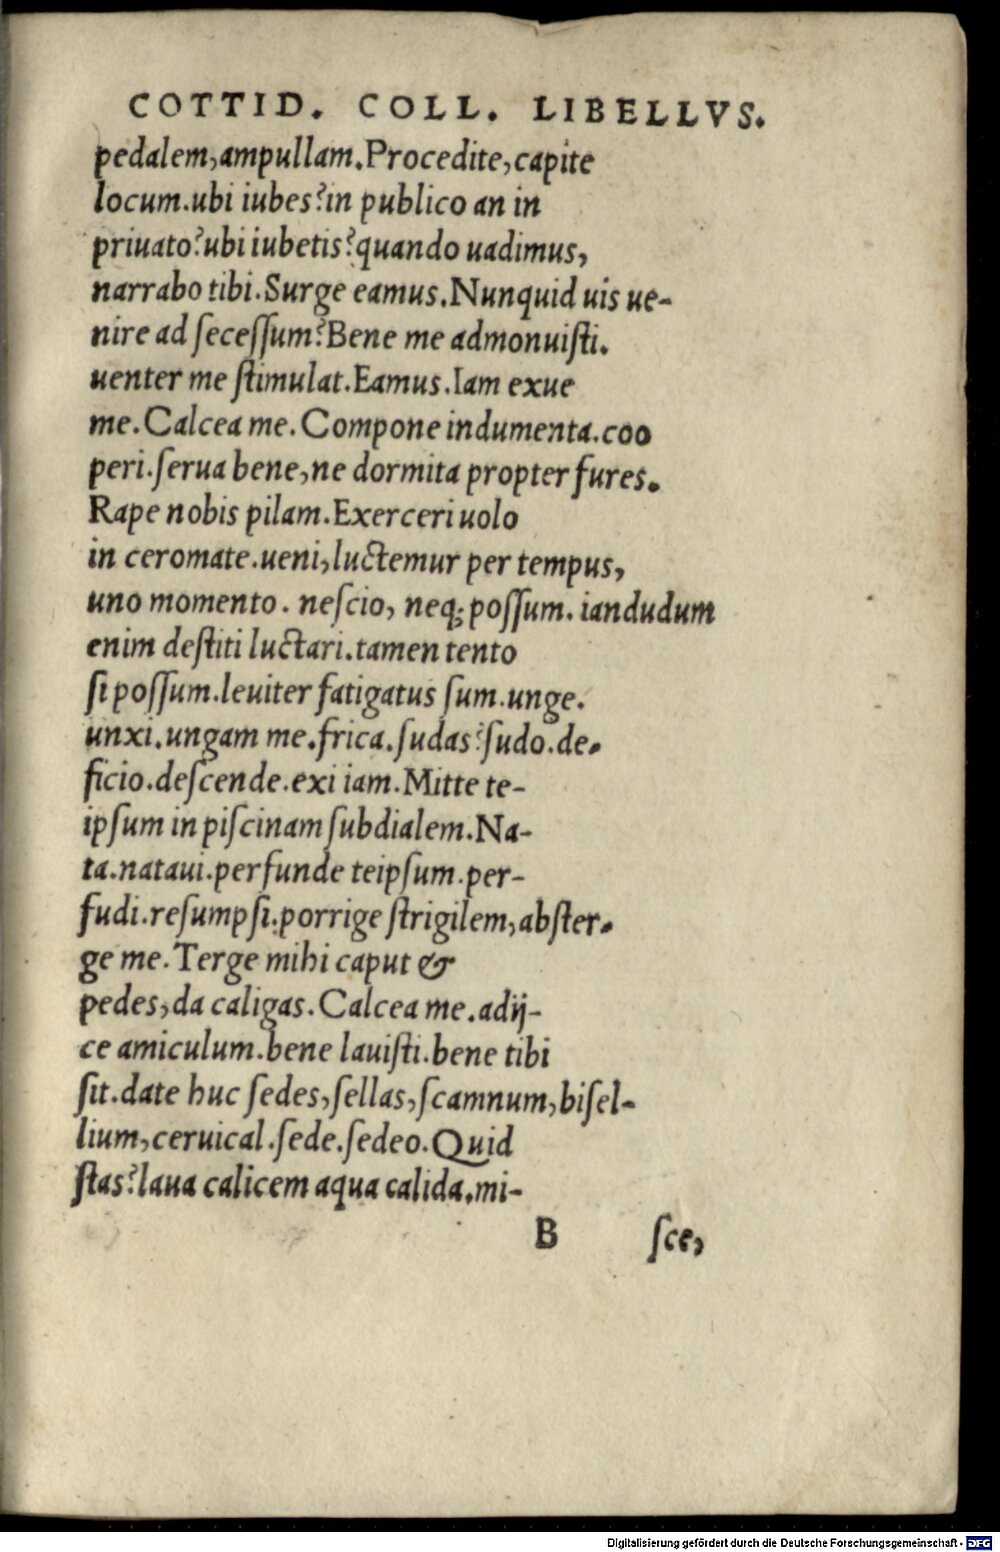 COTTID. COLL. LIBELLVS.
pedalem, ampullam. Procedite, capite
locum. ubi iubes? in publico an in
priuato? ubi iubetis? quando uadimus,
narrabo tibi. Surge eamus. Nunquid uis ue-
nire ad ſeceſſum? Bene me admonuiſti.
uenter me ſtimulat. Eamus. Iam exue
me. Calcea me. Compone indumenta. coo
peri. ſerua bene, ne dormita propter fures.
Rape nobis pilam. Exerceri uolo
in ceromate. ueni, luctemur per tempus,
uno momento. neſcio, neq; poſſum. iandudum
enim deſtiti luctari. tamen tento
ſi poſſum. leuiter fatigatus ſum. unge.
unxi. ungam me. frica. ſudas? ſudo. de-
ficio. deſcende. exi iam. Mitte te-
ipſum in piſcinam ſubdialem. Na-
ta. nataui. perfunde teipſum. per-
fudi. reſumpſi. porrige ſtrigilem, abſter-
ge me. Terge mihi caput &
pedes, da caligas. Calcea me. adij-
ce amiculum. bene lauiſti. bene tibi
ſit. date huc ſedes, ſellas, ſcamnum, biſel-
lium, ceruical. ſede. ſedeo. Quid
ſtas? laua calicem aqua calida. mi-
B ſce,
Digitalisierung gefördert durch die Deutsche Forschungsgemeinschaft - DFG